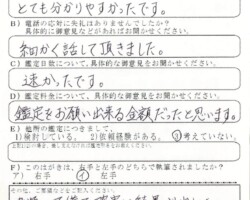 とても分かりやすかったです。
B) 電話の応対に失礼はありませんでしたか？
具体的に御意見などがあればお聞かせください。
細かく話して頂きました。
C) 鑑定日数について、具体的な御意見をお聞かせください。
速かったです。
D) 鑑定料金について、具体的な御意見をお聞かせください。
鑑定をお願い出来る金額だったと思います。
E) 他所の鑑定につきまして、
1)検討している。 2)依頼経験がある。 3)考えていない。
F) このはがきは、右手と左手のどちらで執筆されましたか？
ア) 右手 イ) 左手